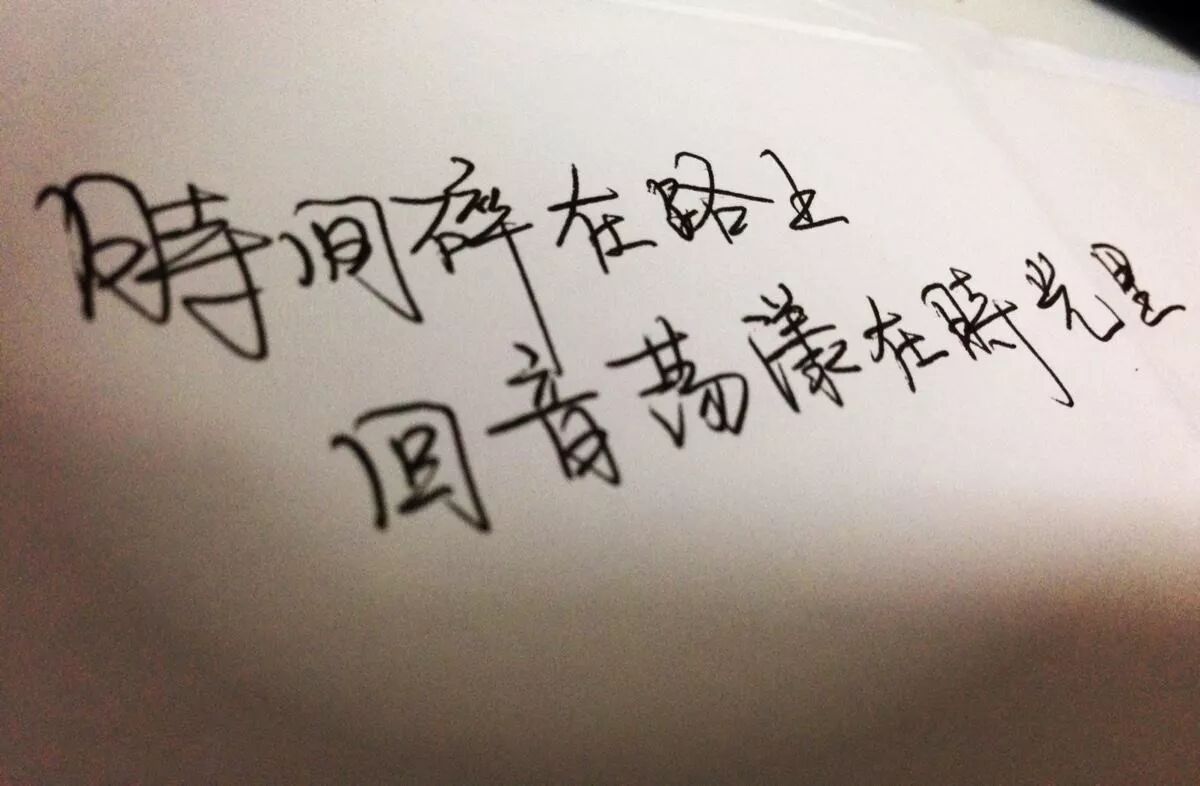 時间碎在路上
回音荡漾在時光里